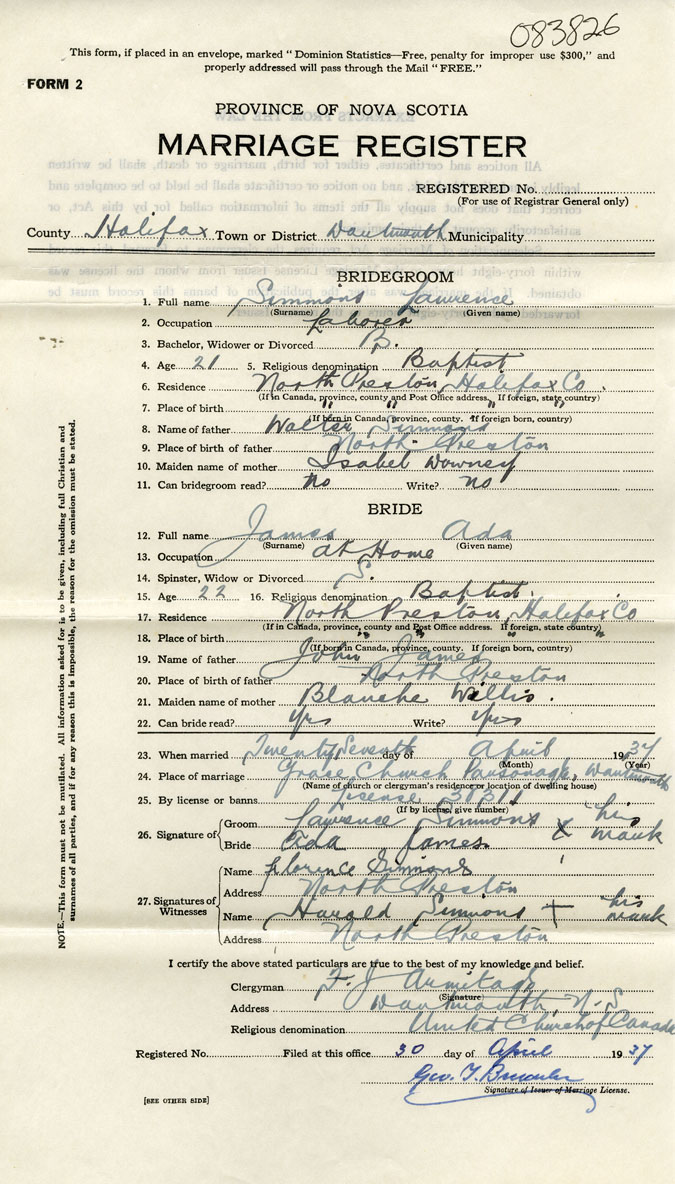 083826
This form, if placed in an envelope, marked "Dominion Statistics—Free, penalty for improper use $300," and
properly addressed will pass through the Mail "FREE."
FORM 2
PROVINCE OF NOVA SCOTIA
MARRIAGE REGISTER
REGISTERED No.
(For use of Registrar General only)
County Halifax Town or District Dartmouth Municipality
BRIDEGROOM
1. Full name Simmons Lawrence
(Surname) (Given name)
2. Occupation Laborer
3. Bachelor, Widower or Divorced B.
4. Age 21 5. Religious denomination Baptist
6. Residence North Preston, Halifax Co.
(If in Canada, province, county and Post Office address. If foreign, state country)
7. Place of birth " " "
(If born in Canada, province, county. If foreign born, country)
8. Name of father Walter Simmons
9. Place of birth of father North Preston
10. Maiden name of mother Isabel Downey
11. Can bridegroom read? no Write? no
BRIDE
12. Full name James Ada
(Surname) (Given name)
13. Occupation at Home
14. Spinster, Widow or Divorced S.
15. Age 22 16. Religious denomination Baptist.
17. Residence North Preston, Halifax Co
(If in Canada, province, county and Post Office address. If foreign, state country)
18. Place of birth " " " "
(If born in Canada, province, county. If foreign born, country)
19. Name of father John James
20. Place of birth of father North Preston
21. Maiden name of mother Blanche Willis.
22. Can bride read? yes Write? yes
23. When married Twenty Seventh day of April 1937
(Month) (Year)
24. Place of marriage Grace Church Parsonage, Dartmouth
(Name of church or clergyman's residence or location of dwelling house)
25. By license or banns License 31311
(If by license, give number)
26. Signature of Groom Lawrence Simmons X his mark
Bride Ada James.
27. Signatures of Witnesses
Name Florence Simmons
Address North Preston
Name Harold Simmons + his mark
Address North Preston
I certify the above stated particulars are true to the best of my knowledge and belief.
Clergyman F. J Armitage
(Signature)
Address Dartmouth, N. S
Religious denomination United Church of Canada
Registered No. Filed at this office 30 day of April 1937
Geo. T.
Signature of Issuer of Marriage License.
[SEE OTHER SIDE]
NOTE.—This form must not be mutilated. All information asked for is to be given, including full Christian and
surnames of all parties, and if for any reason this is impossible, the reason for the omission must be stated.